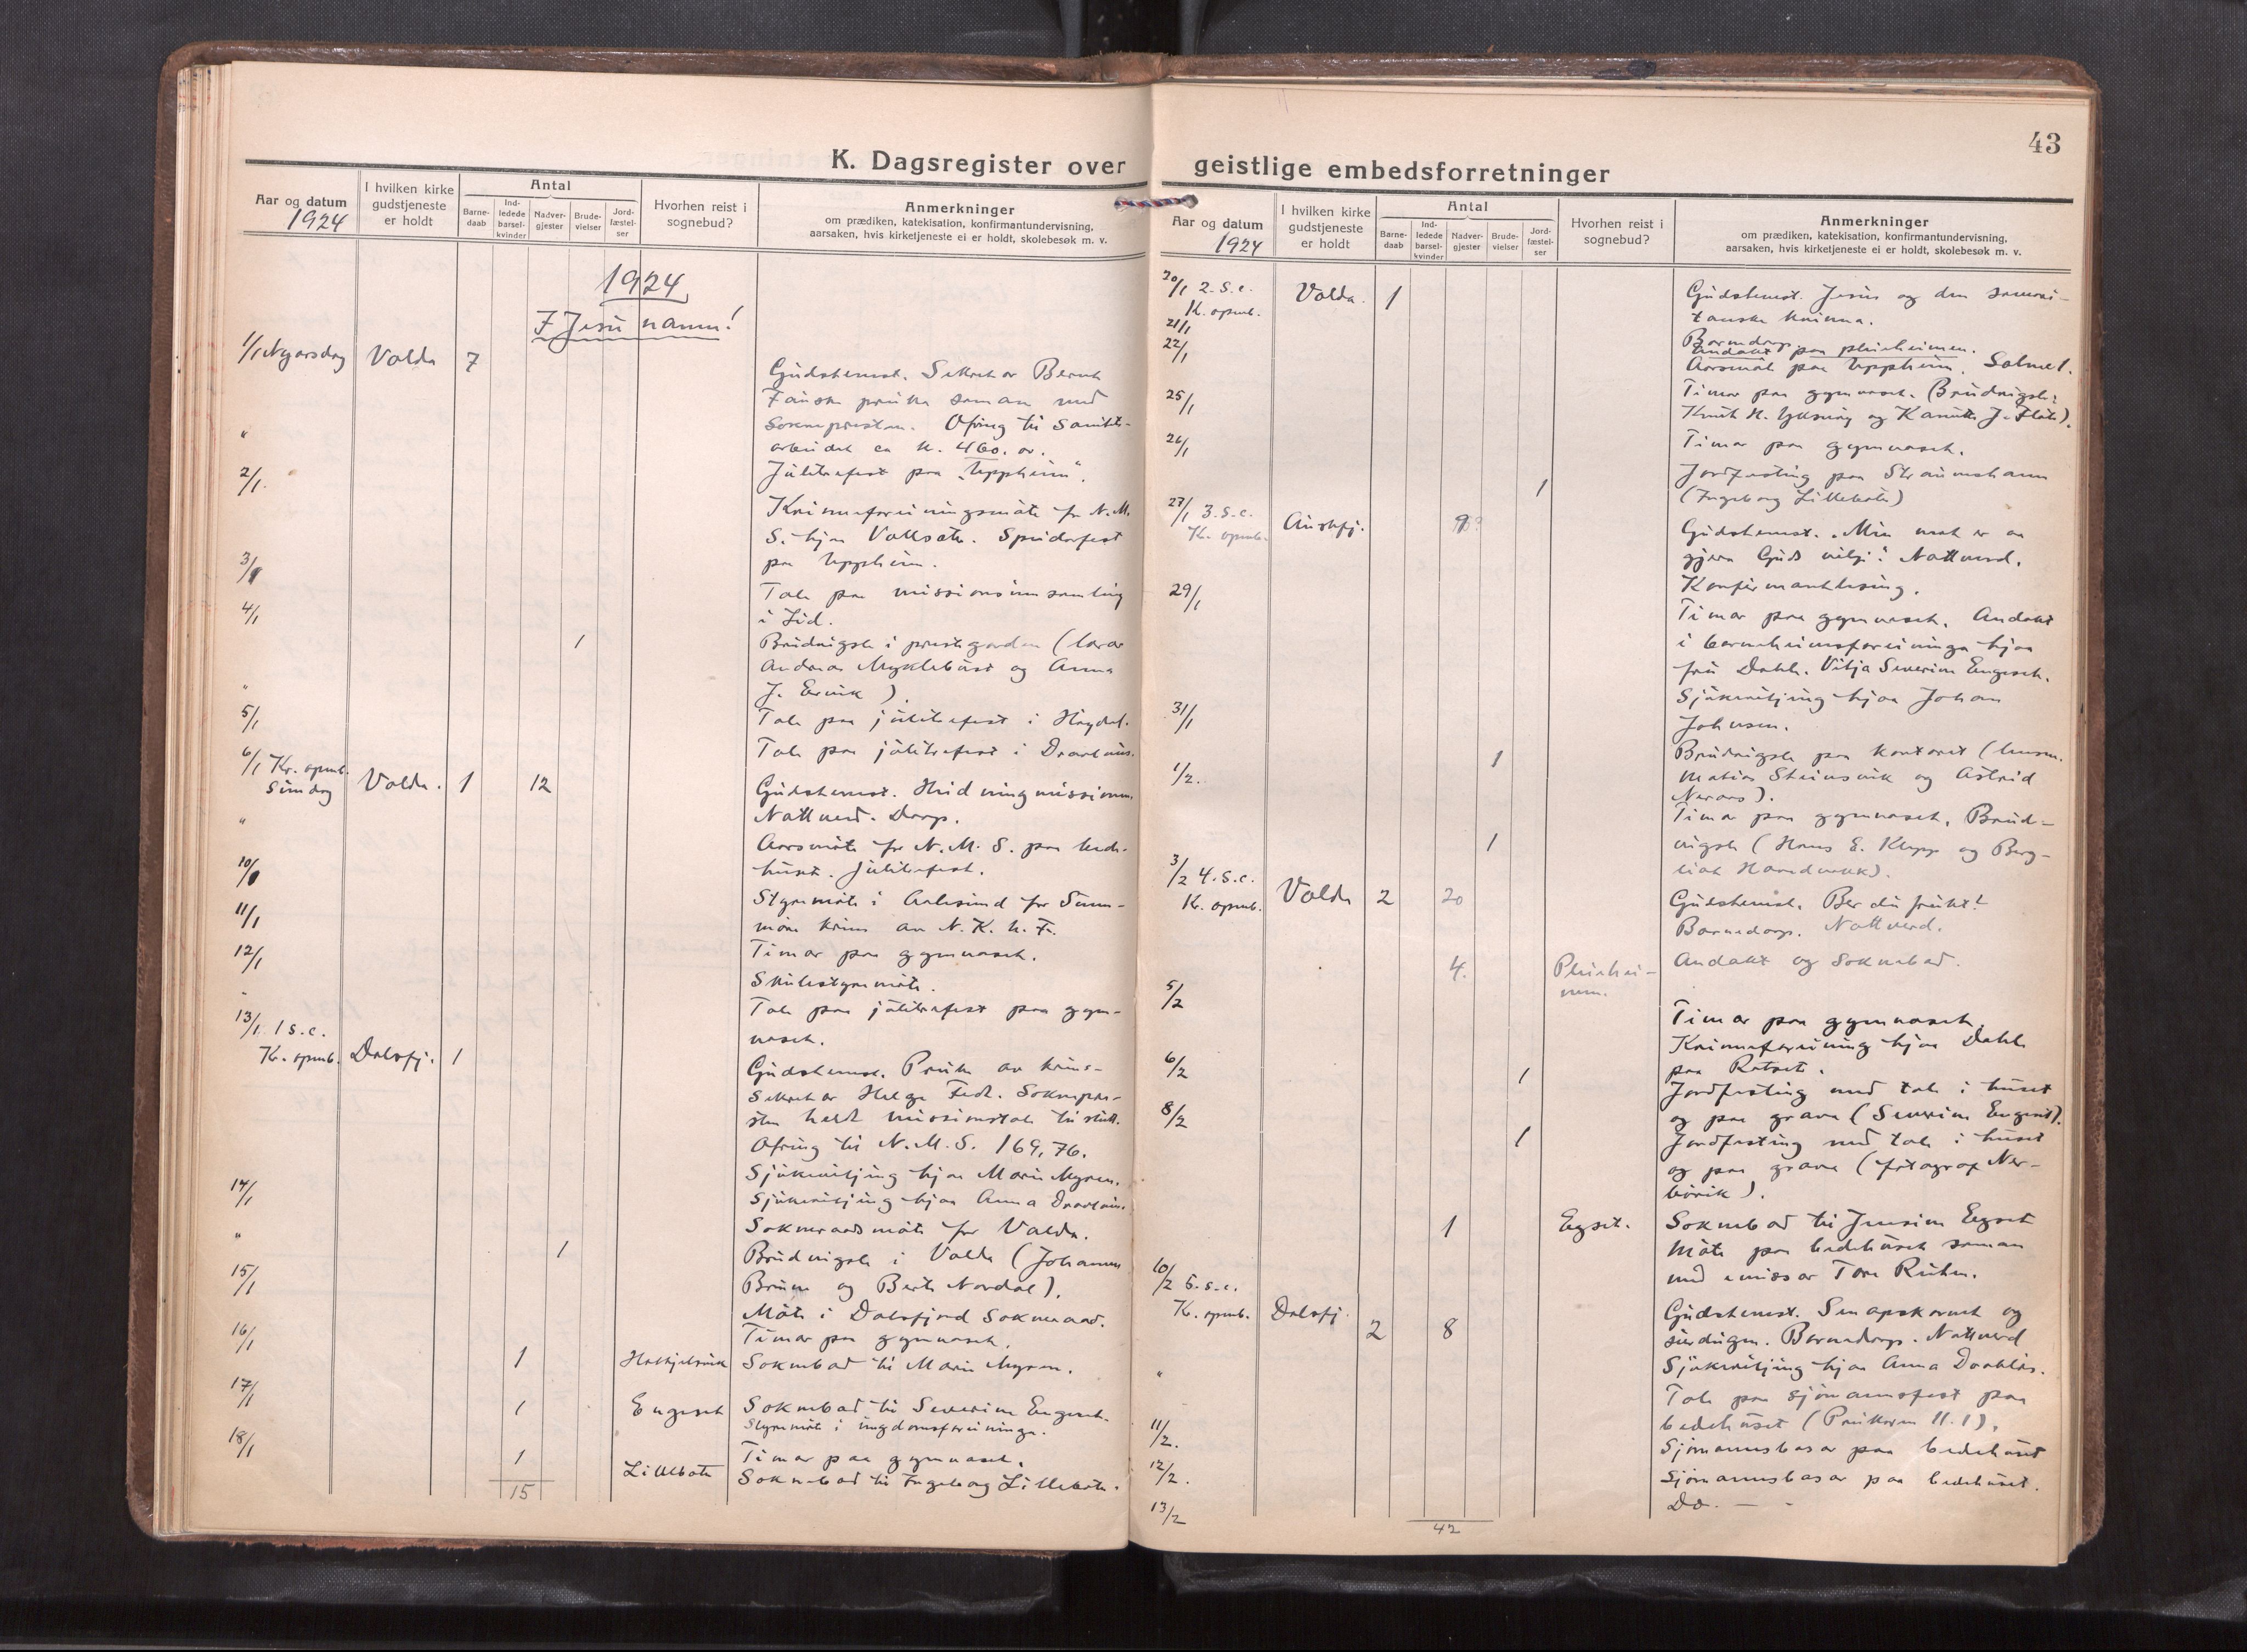 43
K. Dagsregister over
Aar og datum
1924
I hvilken kirke
gudstjeneste
er holdt
Antal
Barne-
daab
Ind-
ledede
barsel-
kvinder
Nadver-
gjester
Brude-
vielser
Jord-
fæstel-
ser
Hvorhen reist i
sognebud?
Anmerkninger
om prædiken, katekisation, konfirmantundervisning,
aarsaken, hvis kirketjeneste ei er holdt, skolebesøk m. v.
1924
I Jesu namn!
1/1 Nyarsdag Volda 7
Gudstenest. Sekretær Bernt
Fauske preika saman med
Soknepresten. Ofring til Sanitets-
arbeidet ca kr. 460. oo.
" Juletrefest paa "Uppheim".
2/1. Kvinneforeiningsmøte for N.M.
S. hjaa Vollsæte. Speidarfest
paa Uppheim.
3/1 Tale paa missionsinnsamling
i Lid.
4/1 1 Brudvigsle i prestegarden (lærar
Andreas Myklebust og Anna
J. Ervik).
" Tale paa juletrefest i Høydal.
5/1 Tale paa juletrefest i
6/1 Kr. openb.
Sundag Volda. 1 12 Gudstenest. Heidningmissionen.
Nattverd. Daap.
" Aarsmøte for N. M. S. paa bede-
huset. Juletrefest.
10/1 Styremøte i Aalesund for Sunn-
møre krins av N. K. U. F.
11/1 Timar paa gymnaset.
12/1 Skulestyremøte.
Tale paa juletrefest paa gym-
naset.
13/1 1 s.e.
Kr. openb. Dalsfj. 1 Gudstenest. Preike av krins-
sekretær Helge Fedt. Soknepre-
sten heldt missionstale til slutt.
Ofring til N. M. S. 169,76.
Sjukevitjing hjaa Marie Myren.
14/1 Sjukevitjing hjaa Anna
Sokneraadsmøte for Volda.
" 1 Brudvigsle i Volda (Johannes
Brune og Berte Nordal).
15/1 Møte i Dalsfjord Sokneraad.
16/1 Timar paa gymnaset.
1 Soknebod til Marie Myren.
17/1 1 Engeset Soknebod til Severine Engeset.
Styremøte i ungdomsforeininga.
18/1 Timar paa gymnaset.
1 Lillebøte Soknebod til Ingeborg Lillebøte.
15
geistlige embedsforretninger
Aar og datum
1924
I hvilken kirke
gudstjeneste
er holdt
Antal
Barne-
daab
Ind-
ledede
barsel-
kvinder
Nadver-
gjester
Brude-
vielser
Jord-
fæstel-
ser
Hvorhen reist i
sognebud?
Anmerkninger
om prædiken, katekisation, konfirmantundervisning,
aarsaken, hvis kirketjeneste ei er holdt, skolebesøk m. v.
20/1 2. s. e.
Kr. openb. Volda. 1 Gudstenest. Jesus og den samari-
tanske kvinna.
Barnedaap.
21/1 Andakt paa pleieheimen.
22/1 Aarsmøte paa Uppheim.
25/1 Timar paa gymnaset. (Brudvigsle:
Knut H. og J. Fløte).
26/1 Timar paa gymnaset.
1 Jordfesting paa Straumshamn
(Ingeborg Lillebøte)
27/1 3. s. e.
Kr. openb. Austefj. Gudstenest. "Min mat er aa
gjera Guds vilje". Nattverd.
Konfirmantlesing.
29/1 Timar paa gymnaset. Andakt
i barneheimsforeininga hjaa
fru Dahle. Vitja Severine Engeset.
Sjukevitjing hjaa Johan
Johnsen.
31/1 1 Brudvigsle paa kontoret (
Matias Steinsvik og Astrid
Neraas).
1/2. Timar paa gymnaset. Brud-
1 vigsle (Hans E. Klepp og Berg-
liot).
3/2 4. s. e.
Kr. openb. Volda 2 20 Gudstenest. Ber du frukt?
Barnedaap. Nattverd.
4. Pleiehei-
men. Andakt og Soknebod.
5/2 Timar paa gymnaset.
Kvinneforeining hjaa Dahle
paa Rotset.
6/2 1 Jordfesting med tale i huset
og paa grava (Severine Engeset).
8/2 1 Jordfesting med tale i huset
og paa grava (fotograf Ner-
bøvik).
1 Egset. Soknebod til Jensine Egset
Møte paa bedehuset saman
med emissær Tore
10/2 5. s. e.
Kr. openb. Dalsfj. 2 8 Gudstenest. Senapskornet og
surdeigen. Barnedaap. Nattverd
Sjukevitjing hjaa Anna
" Tale paa sjømannsfest paa
bedehuset (Preikaren 11.1).
11/2. Sjømannsbasar paa bedehuset
12/2. Sjømannsbasar paa bedehuset.
13/2 Do. — -
42